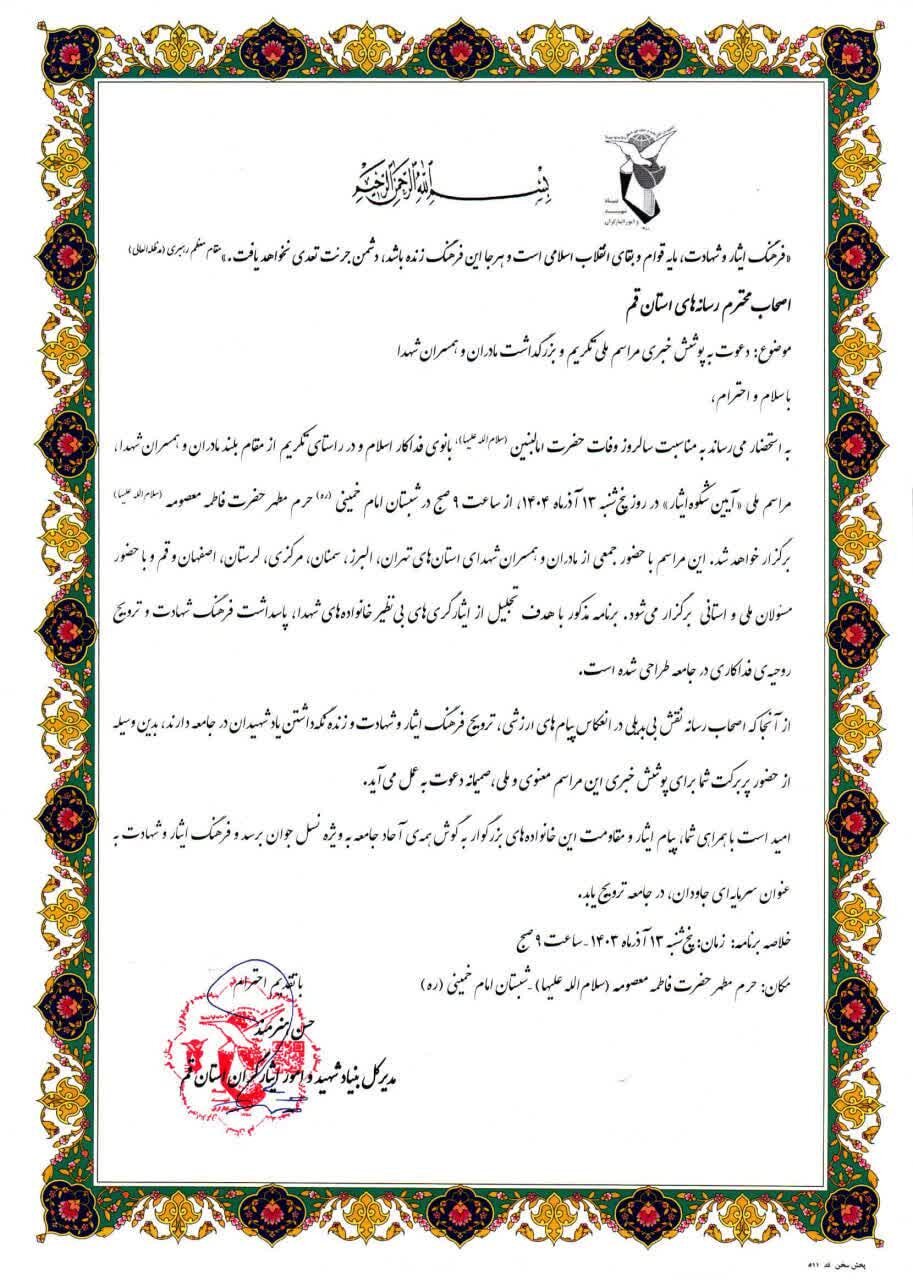 بسم الله الرحمن الرحیم
بنیاد
شهید
و امور ایثارگران
«فرهنگ ایثار و شهادت، مایه قوام و بقای انقلاب اسلامی است و هر جا این فرهنگ زنده باشد، دشمن جرئت تعدی نخواهد یافت.» مقام معظم رهبری (مدظله العالی)
اصحاب محترم رسانه‌های استان قم
موضوع: دعوت به پوشش خبری مراسم ملی تکریم و بزرگداشت مادران و همسران شهدا
با سلام و احترام،
به استحضار می‌رساند به مناسبت سالروز وفات حضرت ام‌البنین (سلام الله علیها)، بانوی فداکار اسلام و در راستای تکریم از مقام بلند مادران و همسران شهدا،
مراسم ملی «آیین شکوه ایثار» در روز پنج‌شنبه ۱۳ آذرماه ۱۴۰۴، از ساعت ۹ صبح در شبستان امام خمینی (ره) حرم مطهر حضرت فاطمه معصومه (سلام الله علیها)
برگزار خواهد شد. این مراسم با حضور جمعی از مادران و همسران شهدای استان‌های تهران، البرز، سمنان، مرکزی، لرستان، اصفهان و قم و با حضور
مسئولان ملی و استانی برگزار می‌شود. برنامه مذکور با هدف تجلیل از ایثارگری‌های بی‌نظیر خانواده‌های شهدا، پاسداشت فرهنگ شهادت و ترویج
روحیه‌ی فداکاری در جامعه طراحی شده است.
از آنجا که اصحاب رسانه نقش بی‌بدیلی در انعکاس پیام‌های ارزشی، ترویج فرهنگ ایثار و شهادت و زنده نگه‌داشتن یاد شهیدان در جامعه دارند، بدین وسیله
از حضور پربرکت شما برای پوشش خبری این مراسم معنوی و ملی، صمیمانه دعوت به عمل می‌آید.
امید است با همراهی شما، پیام ایثار و مقاومت این خانواده‌های بزرگوار به گوش همه‌ی آحاد جامعه به ویژه نسل جوان برسد و فرهنگ ایثار و شهادت به
عنوان سرمایه‌ای جاودان، در جامعه ترویج یابد.
خلاصه برنامه: زمان: پنج‌شنبه ۱۳ آذرماه ۱۴۰۳ - ساعت ۹ صبح
مکان: حرم مطهر حضرت فاطمه معصومه (سلام الله علیها) - شبستان امام خمینی (ره)
با تقدیم احترام
حسن هنرمند
مدیرکل بنیاد شهید و امور ایثارگران استان قم
پخش سخن کد ۵۱۱